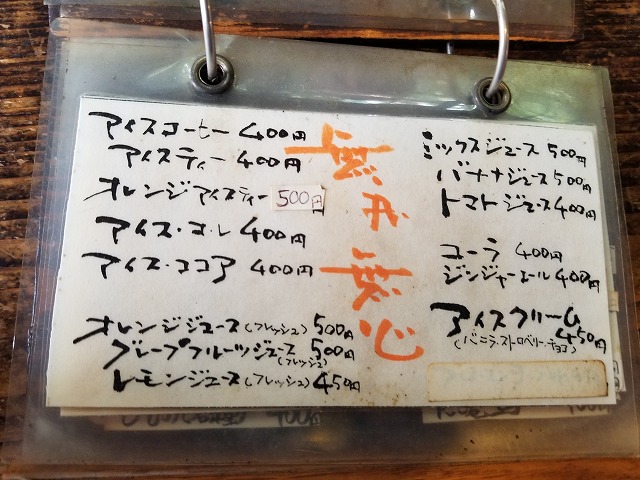 アイスコーヒー 400円
アイスティー 400円
オレンジアイスティー 500円
アイス・オ・レ 400円
アイス・ココア 400円
オレンジジュース(フレッシュ) 500円
グレープフルーツジュース(フレッシュ) 500円
レモンジュース(フレッシュ) 450円
無
心
ミックスジュース 500円
バナナジュース 500円
トマトジュース 400円
コーラ 400円
ジンジャーエール 400円
アイスクリーム 450円
(バニラ・ストロベリー・チョコ)